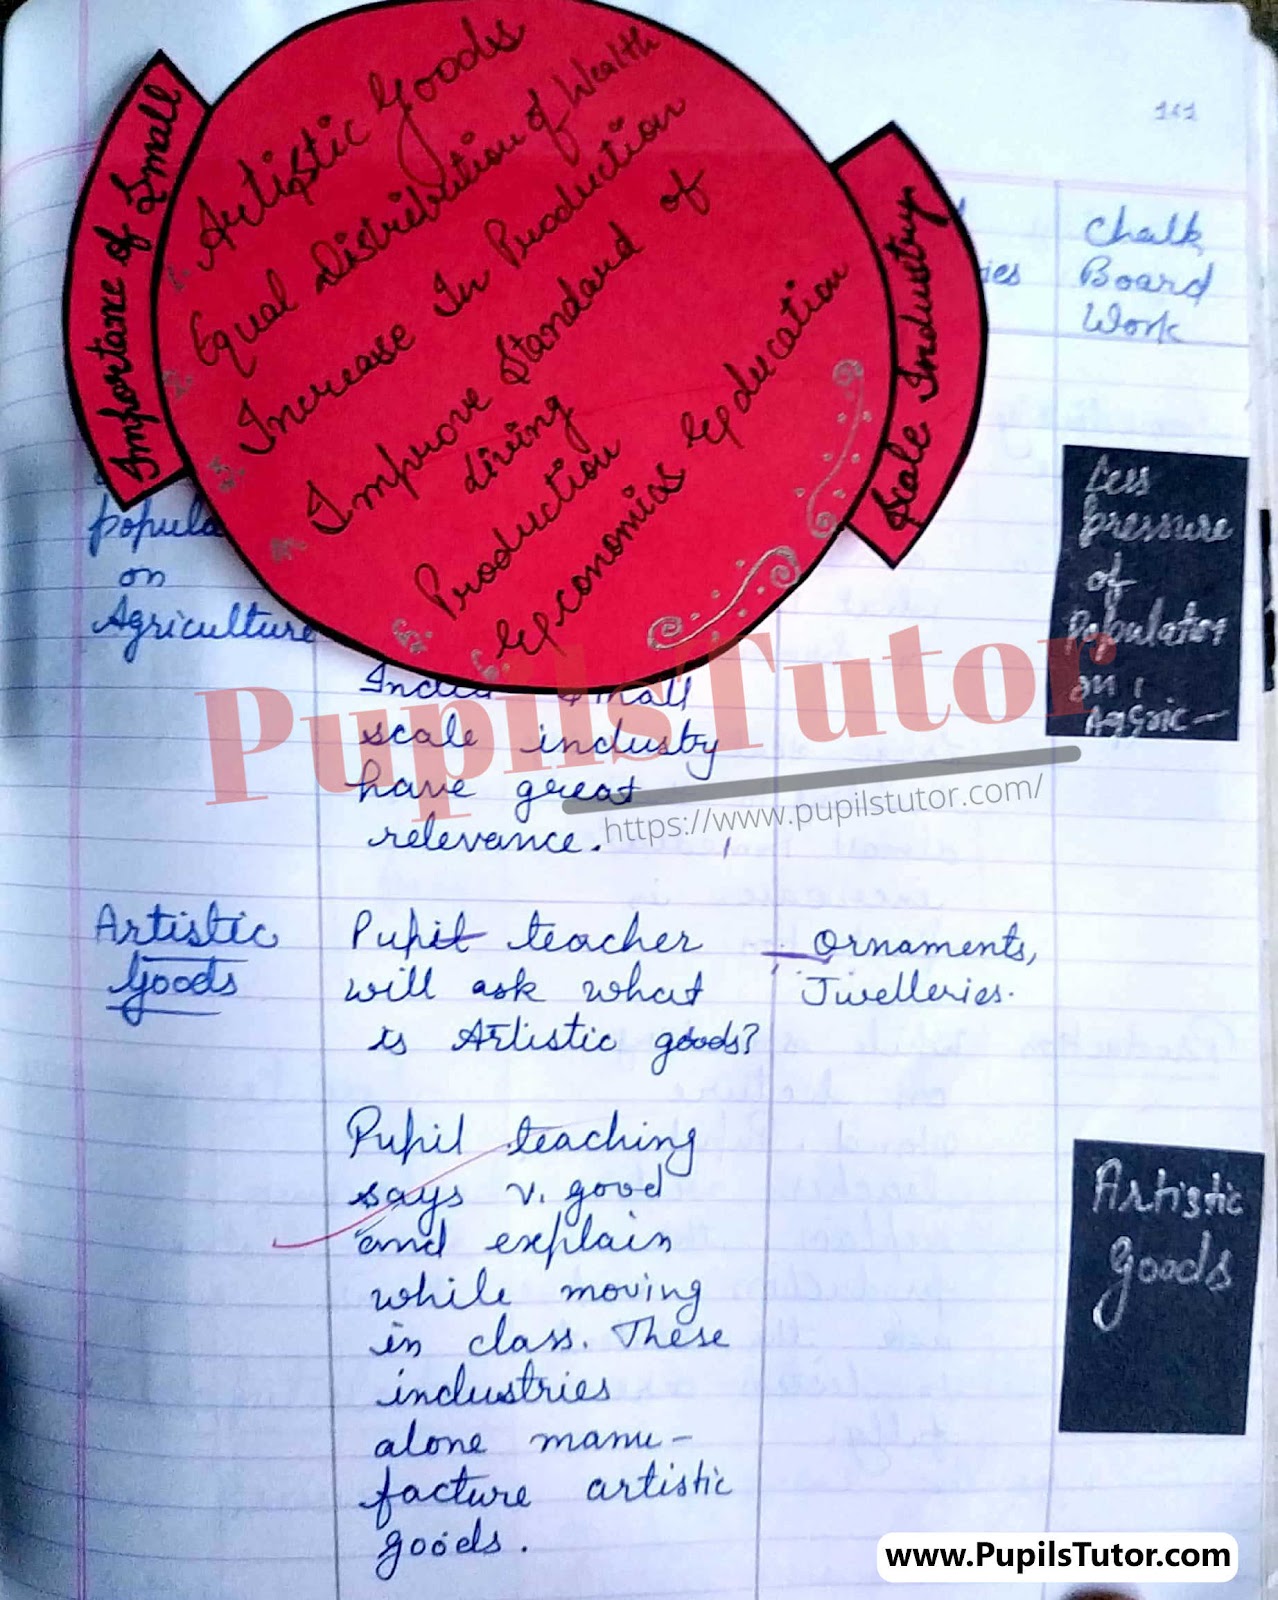 161
Importance of Small
Scale Industry
1. Artistic Goods
2. Equal Distribution of Wealth
3. Increase In Production
4. Improve Standard of
Living
5. Production
6. Economics Education
ies
Chalk
Board
Work
popula
on
Agriculture
Less
pressure
of
Populatios
on
Aggric-
Small
scale industry
have great
relevance.
PupilsTutor
https://www.pupilstutor.com/
Artistic
Goods
Pupil teacher
will ask what
is Artistic goods?
Ornaments,
Jwelleries.
Pupil teaching
says v. good
and explain
while moving
in class. These
industries
alone manu-
facture artistic
goods.
Artistic
Goods
www.PupilsTutor.com